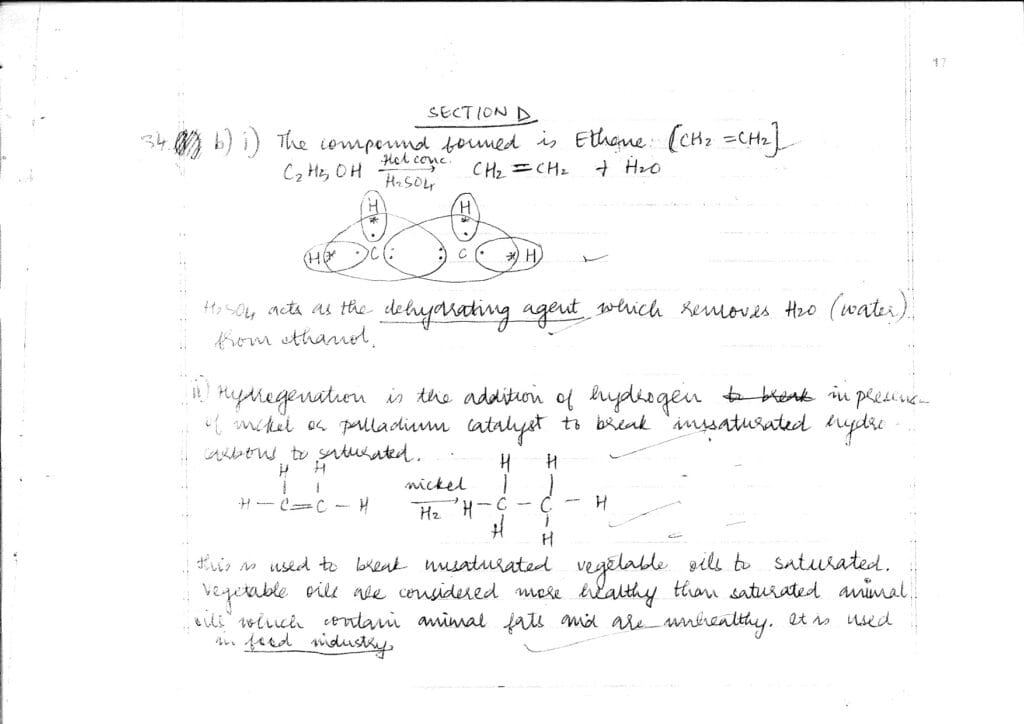 17
SECTION D
34. b) i) The compound formed is Ethene. [CH2 = CH2]
C2H5OH Hot conc. H2SO4 → CH2 = CH2 + H2O
H H
* *
· ·
H * · C : : C · * H
H2SO4 acts as the dehydrating agent which removes H2O (water)
from ethanol.
ii) Hydrogenation is the addition of hydrogen to break in presence
of nickel or palladium catalyst to break unsaturated hydro
carbons to saturated.
H H H H
nickel
H – C = C – H H2 → H – C – C – H
H H
this is used to break unsaturated vegetable oils to saturated.
Vegetable oils are considered more healthy than saturated animal
oils which contain animal fats and are unhealthy. It is used
in food industry